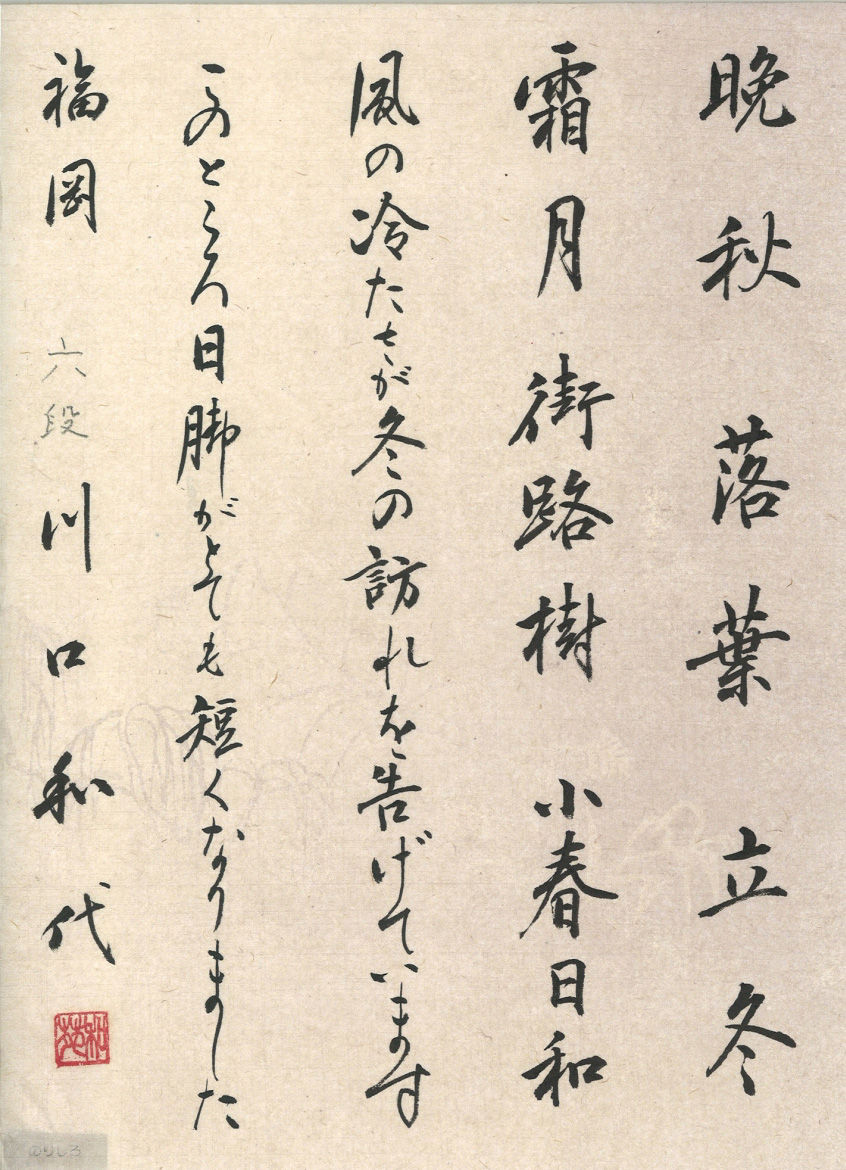 晩秋 落葉 立冬
霜月 街路樹 小春日和
風の冷たさが冬の訪れを告げています
このところ日脚がとても短くなりました
福岡 六段 川口和代